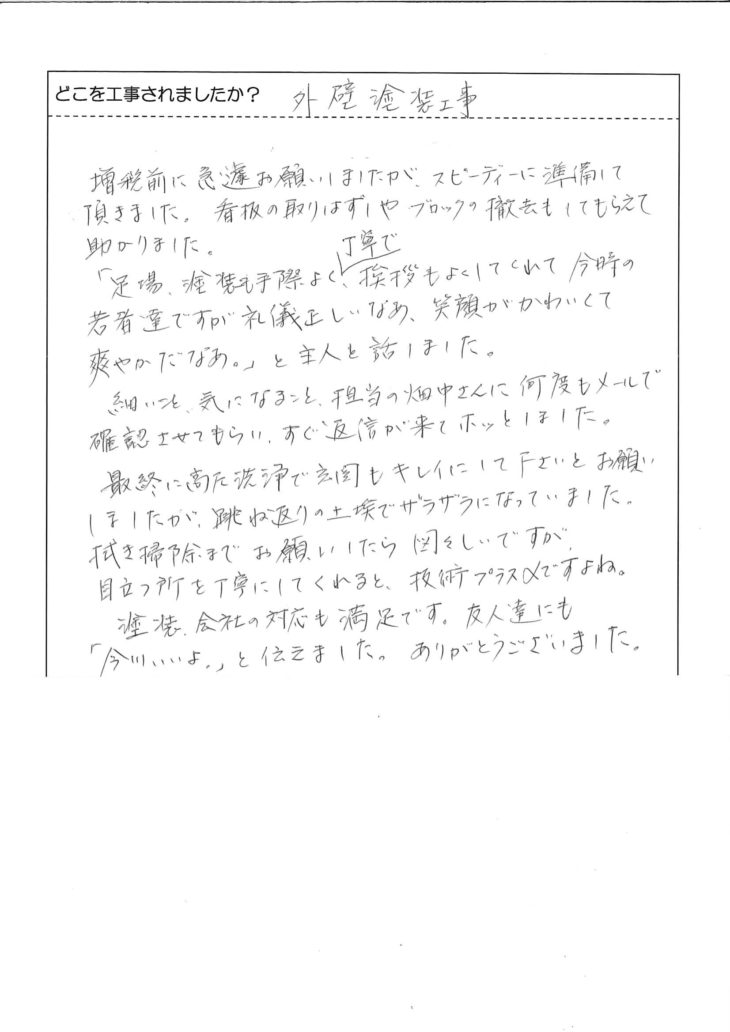 どこを工事されましたか? 外壁塗装工事
増税前に急遽お願いしましたが、スピーディーに準備して
頂きました。看板の取りはずしやブロックの撤去もしてもらえて
助かりました。
「足場、塗装も手際よく、丁寧で挨拶もよくしてくれて今時の
若者達ですが礼儀正しいなあ、笑顔がかわいくて
爽やかだなあ。」と主人と話しました。
細いこと、気になること、担当の畑中さんに何度もメールで
確認させてもらい、すぐ返信が来てホッとしました。
最終に高圧洗浄で玄関もキレイにして下さいとお願い
しましたが、跳ね返りの土埃でザラザラになっていました。
拭き掃除までお願いしたら図々しいですが、
目立つ所を丁寧にしてくれると、技術プラスαですよね。
塗装、会社の対応も満足です。友人達にも
「今川いいよ。」と伝えました。ありがとうございました。